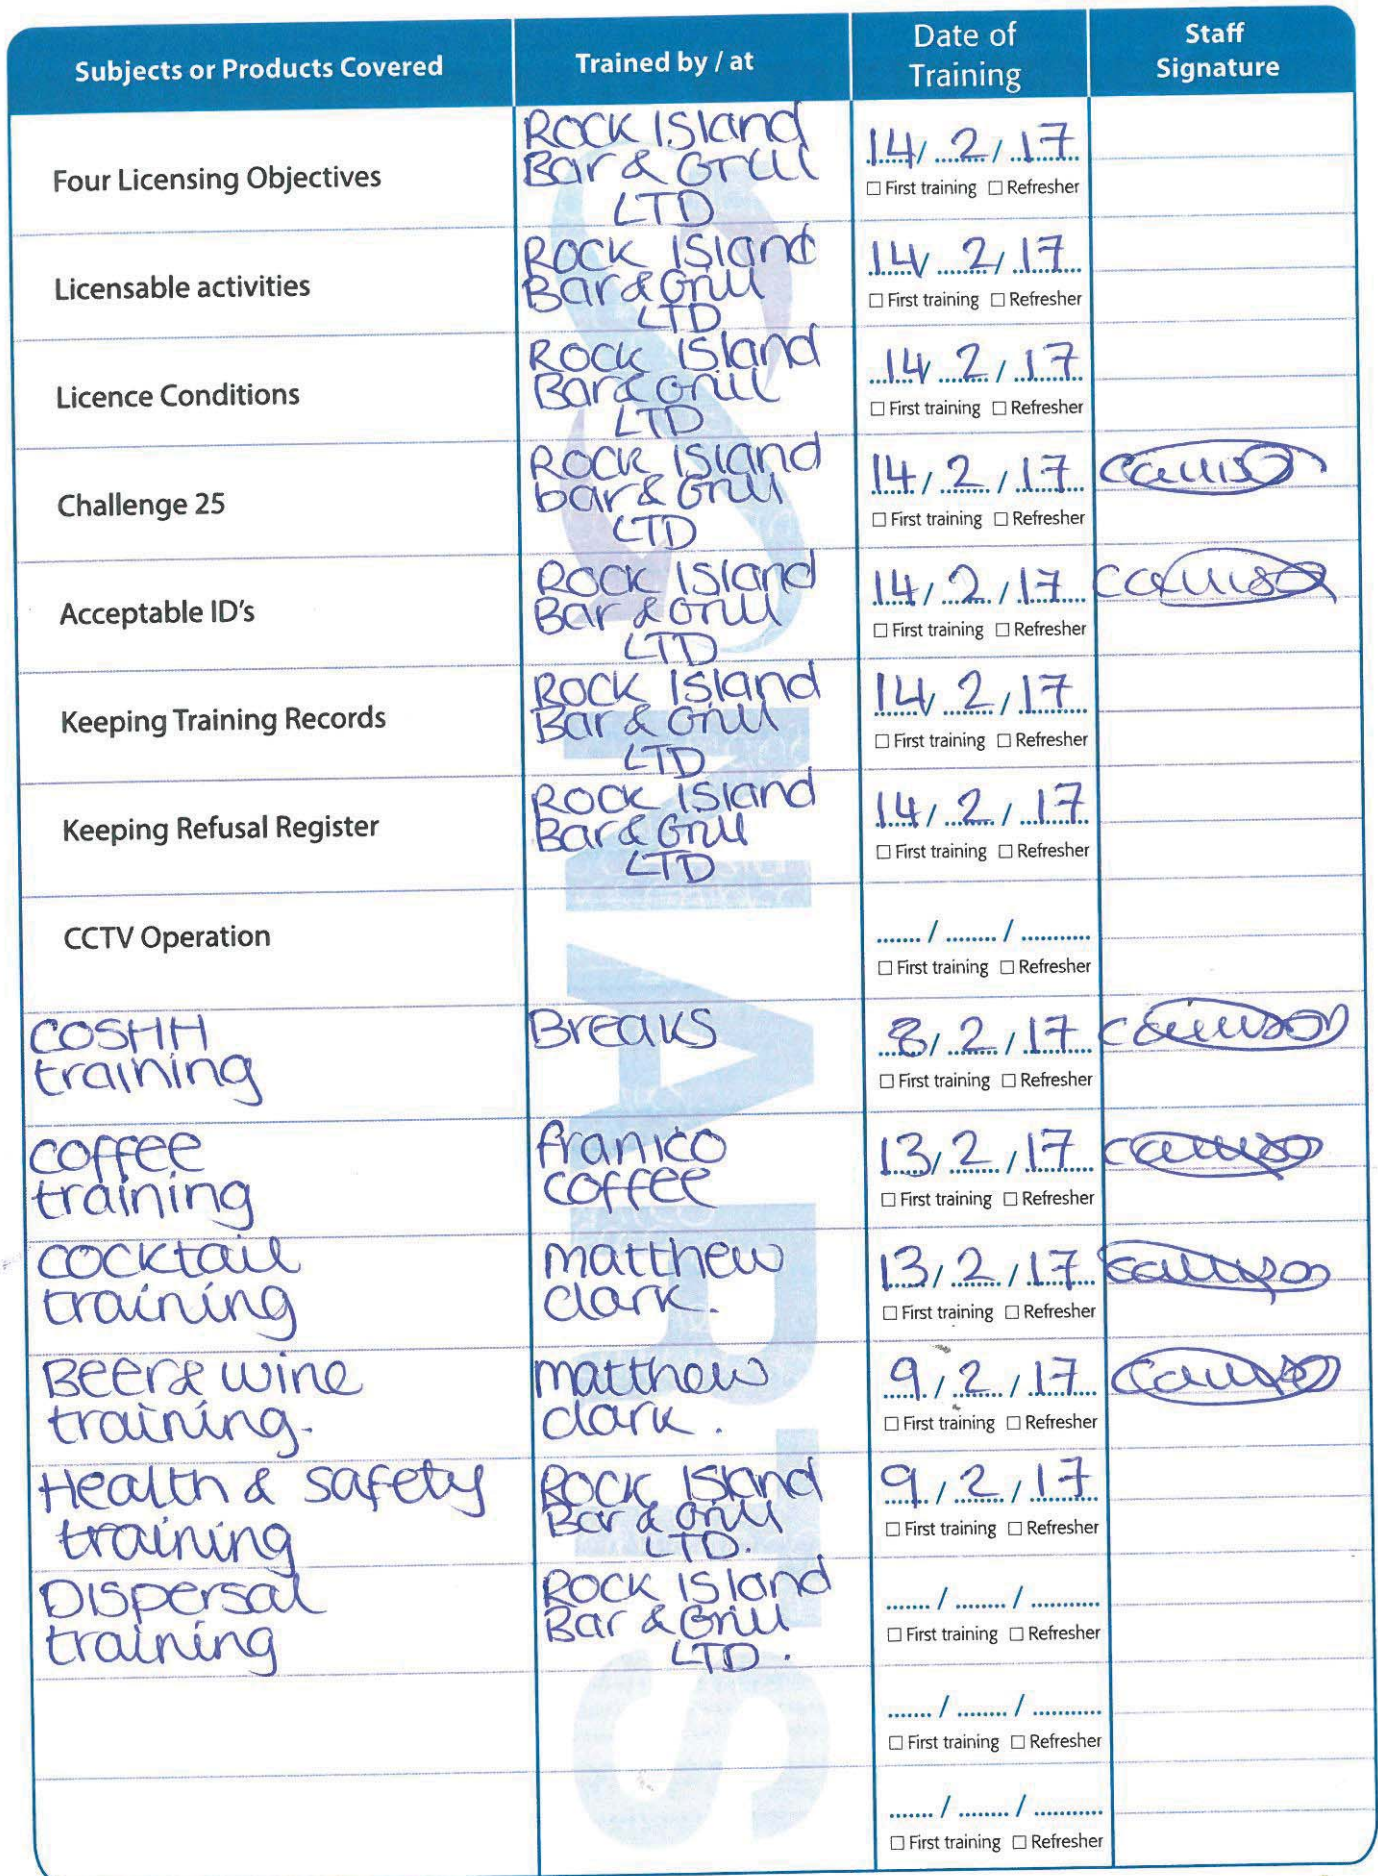 Subjects or Products Covered
Trained by / at
Date of
Training
Staff
Signature
Four Licensing Objectives
Rock Island
Bar & Grill
LTD
14/ 2/ 17
☐ First training ☐ Refresher
Licensable activities
Rock Island
Bar & Grill
LTD
14/ 2/ 17
☐ First training ☐ Refresher
Licence Conditions
Rock Island
Bar & Grill
LTD
14/ 2/ 17
☐ First training ☐ Refresher
Challenge 25
Rock Island
bar & Grill
LTD
14/ 2/ 17
☐ First training ☐ Refresher
Acceptable ID's
Rock Island
Bar & Grill
LTD
14/ 2/ 17
☐ First training ☐ Refresher
Keeping Training Records
Rock Island
Bar & Grill
LTD
14/ 2/ 17
☐ First training ☐ Refresher
Keeping Refusal Register
Rock Island
Bar & Grill
LTD
14/ 2/ 17
☐ First training ☐ Refresher
CCTV Operation
....... / ........ / ...........
☐ First training ☐ Refresher
COSHH
training
Breaks
8/ 2/ 17
☐ First training ☐ Refresher
coffee
training
franico
coffee
13/ 2/ 17
☐ First training ☐ Refresher
cocktail
training
matthew
clark.
13/ 2/ 17
☐ First training ☐ Refresher
Beer & wine
training.
matthew
clark.
9/ 2/ 17
☐ First training ☐ Refresher
Health & safety
training
Rock Island
Bar & Grill
LTD.
9/ 2/ 17
☐ First training ☐ Refresher
Dispersal
training
Rock Island
Bar & Grill
LTD.
....... / ........ / ...........
☐ First training ☐ Refresher
....... / ........ / ...........
☐ First training ☐ Refresher
....... / ........ / ...........
☐ First training ☐ Refresher